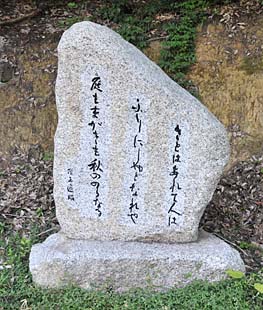 さとはあれて人は
ふりにしやどなれや
庭もまがきも秋ののらなる
僧正遍昭